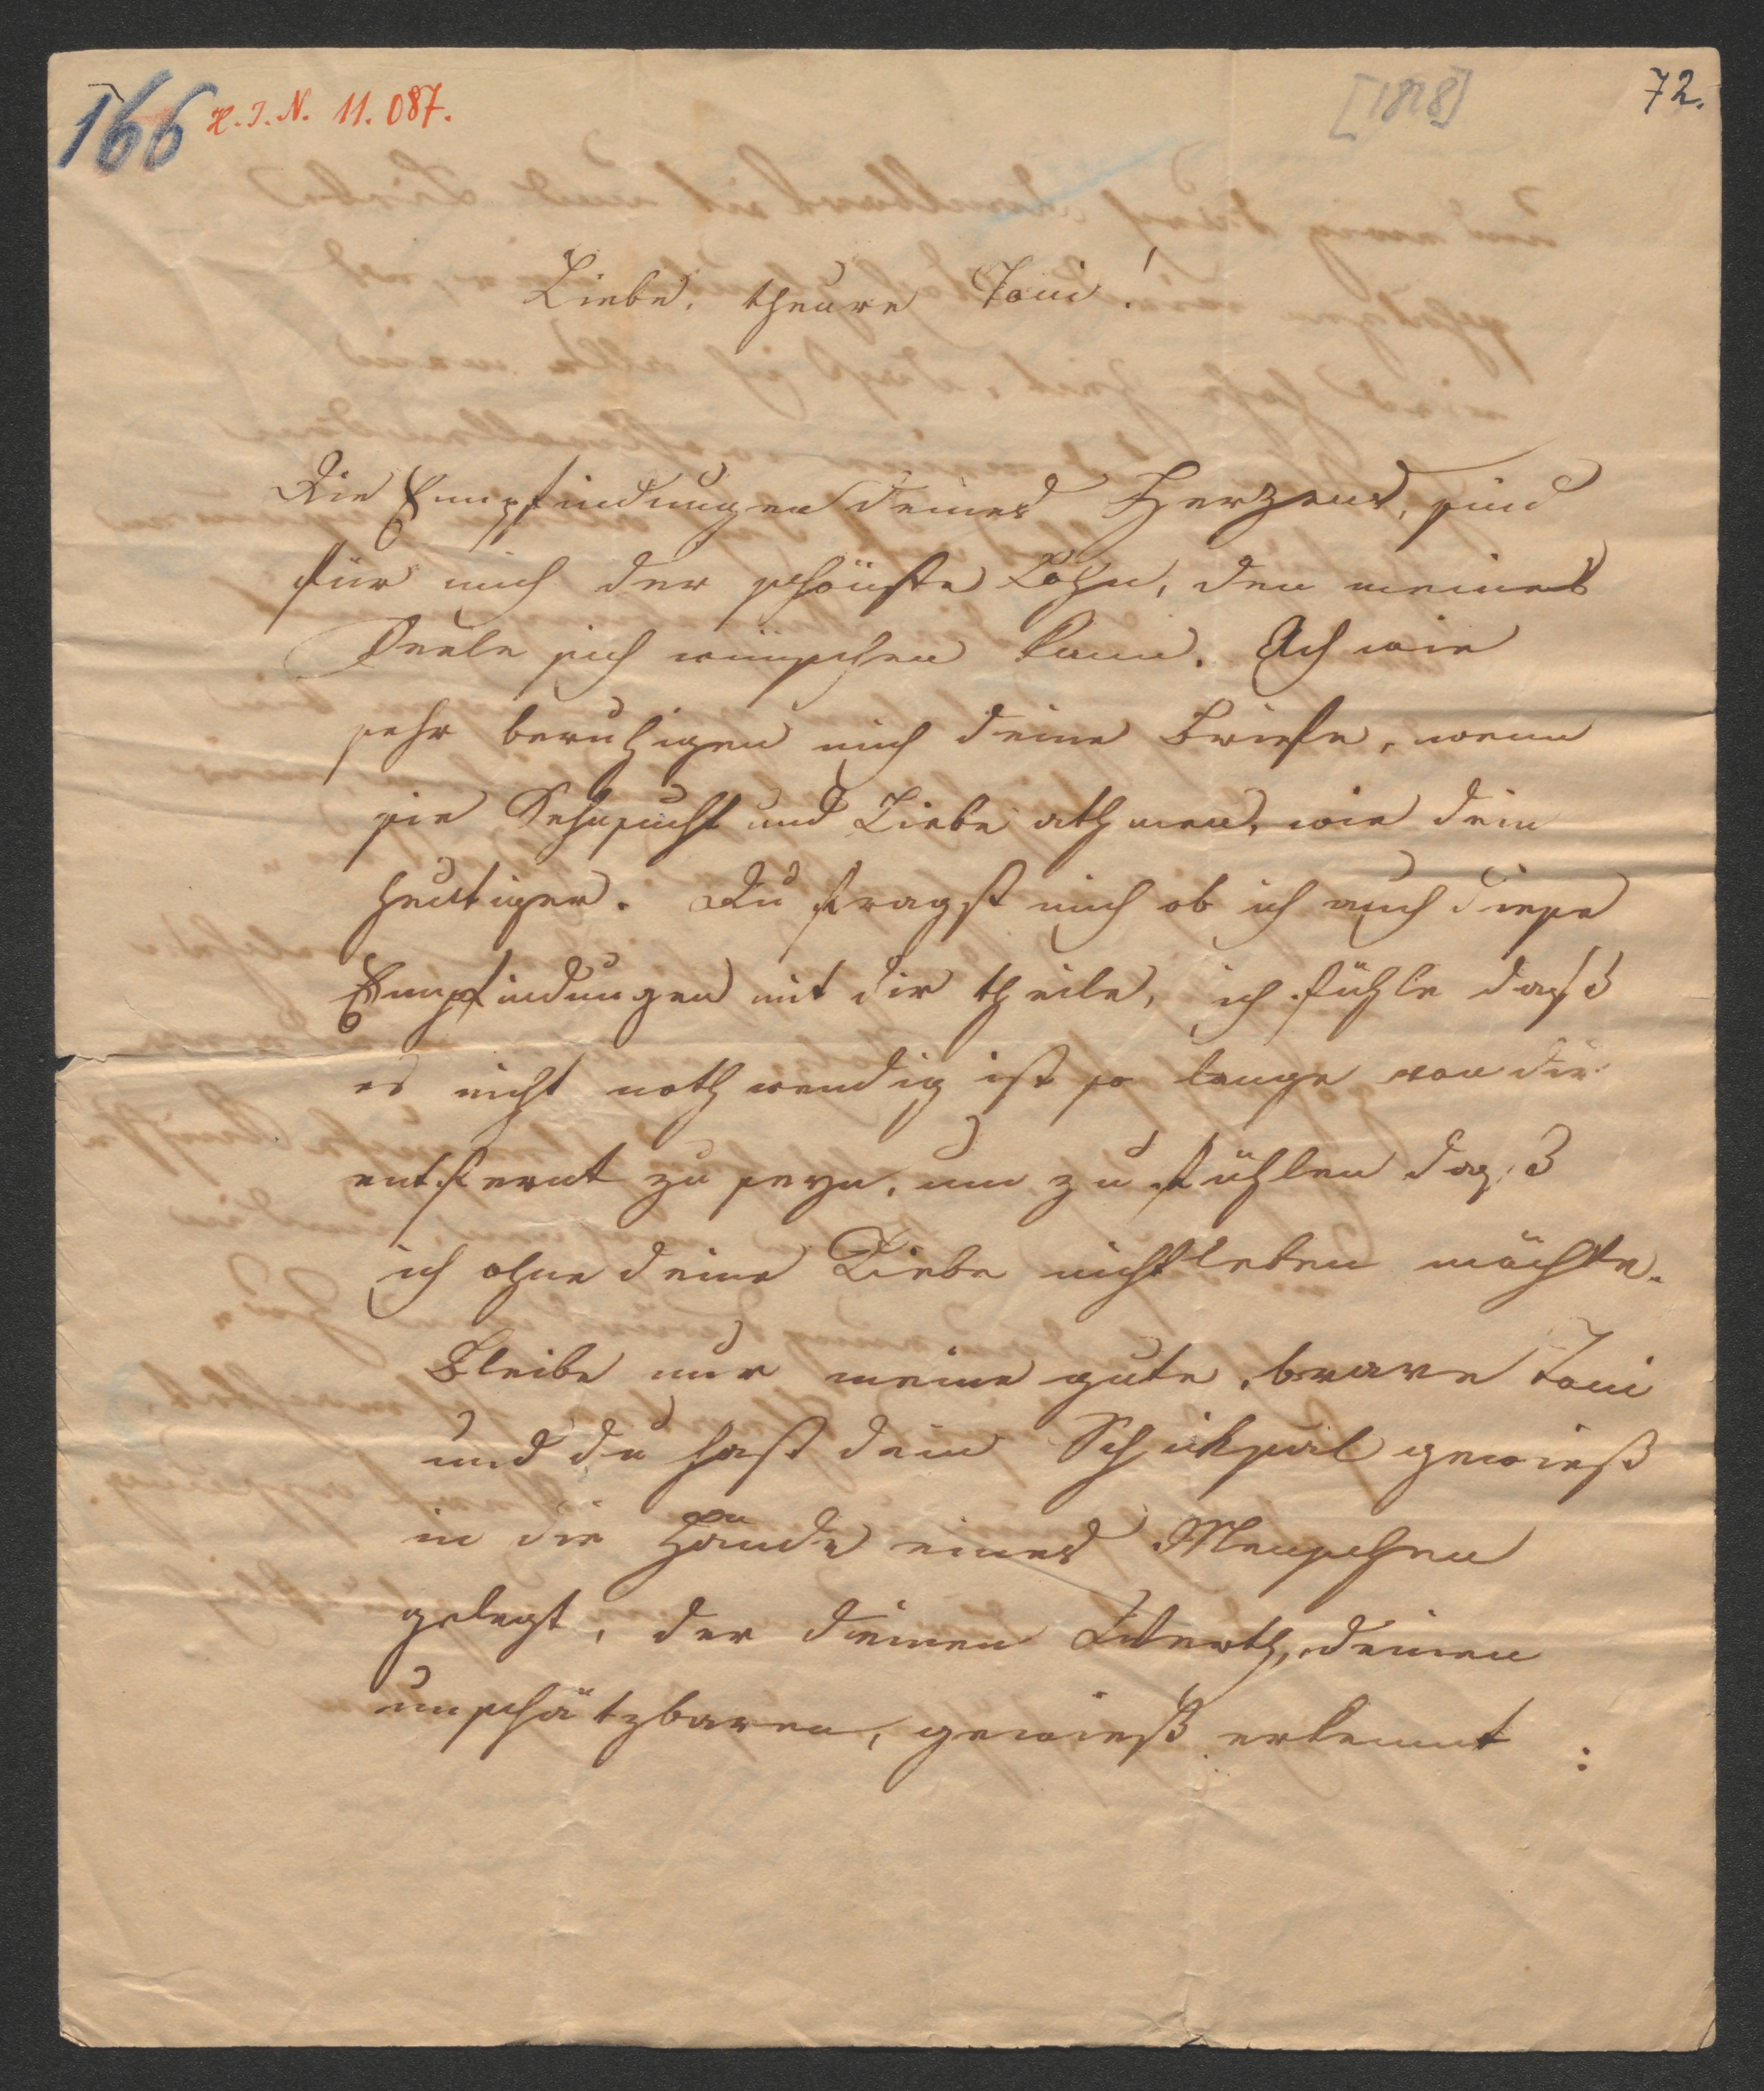 166 H.I.N. 11.087. [1828] 72.
Liebe, theure Toni!
Die Empfindungen deines Herzens, sind
für mich der schönste Lohn, den meine
Seele sich wünschen kann. Ach wie
sehr beruhigen mich deine Briefe, wenn
sie Sehnsucht und Liebe athmen, wie dein
heutiger. Du fragst mich ob ich auch diese
Empfindungen mit dir theile, ich fühle dasß
es nicht nothwendig ist so lange von dir
entfernt zu seyn, um zu fühlen dasß
ich ohne deine Liebe nicht leben möchte.
Bleibe nur meine gute, brave Toni
und du hast dein Schiksal gewieß
in die Hände eines Menschen
gelegt, der deinen Werth, deinen
unschätzbaren, gewieß erkennt :